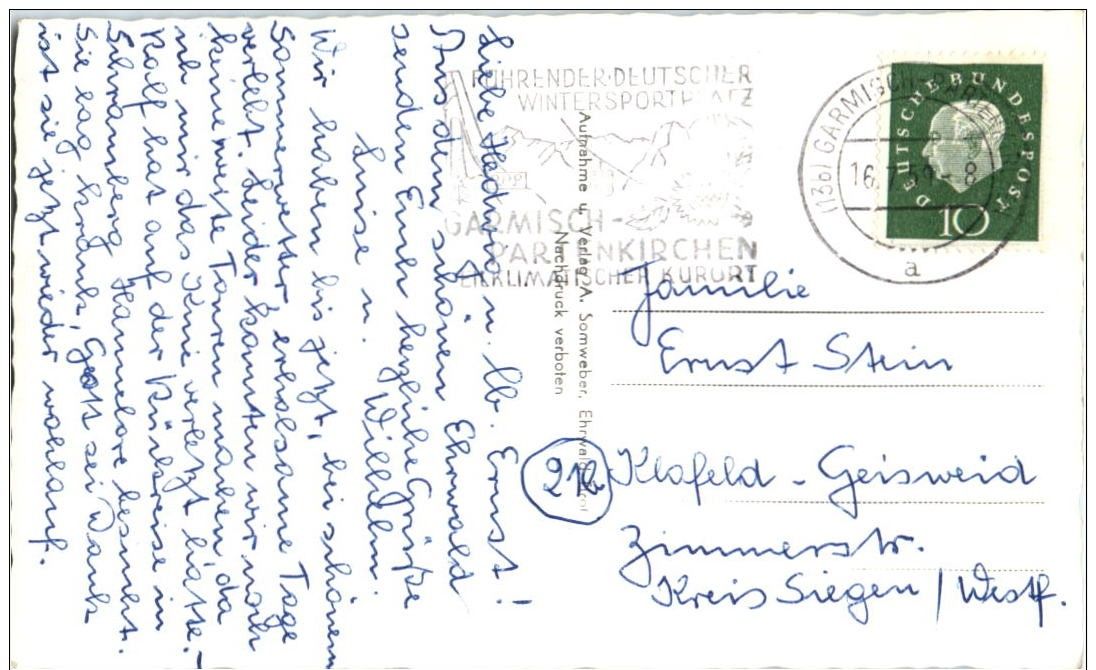 Liebe Hedwig u. lb. Ernst!
Aus dem schönen Ehrwald
senden Euch herzliche Grüße
Luise u. Wilhelm.
Wir haben bis jetzt, bei schönem
Sommerwetter erholsame Tage
verlebt. Leider konnten wir noch
keine weite Touren machen, da
ich mir das Knie verletzt hatte. –
Rolf hat auf der Rückreise in
Schramberg Hannelore besucht.
Sie lag krank, Gott sei Dank
ist sie jetzt wieder wohlauf.
FÜHRENDER·DEUTSCHER
WINTERSPORTPLATZ
GARMISCH-
PARTENKIRCHEN
HEILKLIMATISCHER KURORT
Aufnahme u. Verlag A. Somweber, Ehrwald, Tirol
Nachdruck verboten
(13b) GARMISCH-PARTEN
16.7.59-8
a
DEUTSCHE BUNDESPOST
10
Familie
Ernst Stein
21b Klafeld-Geisweid
Zimmerstr.
Kreis Siegen / Westf.